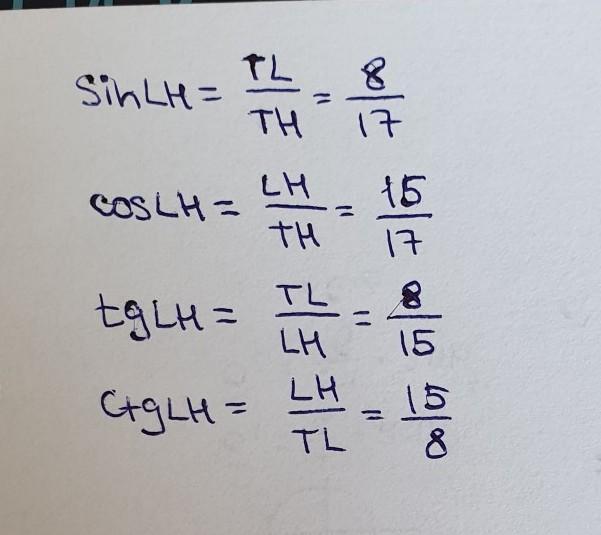 sin∠H = TL/TH = 8/17
cos∠H = LH/TH = 15/17
tg∠H = TL/LH = 8/15
ctg∠H = LH/TL = 15/8